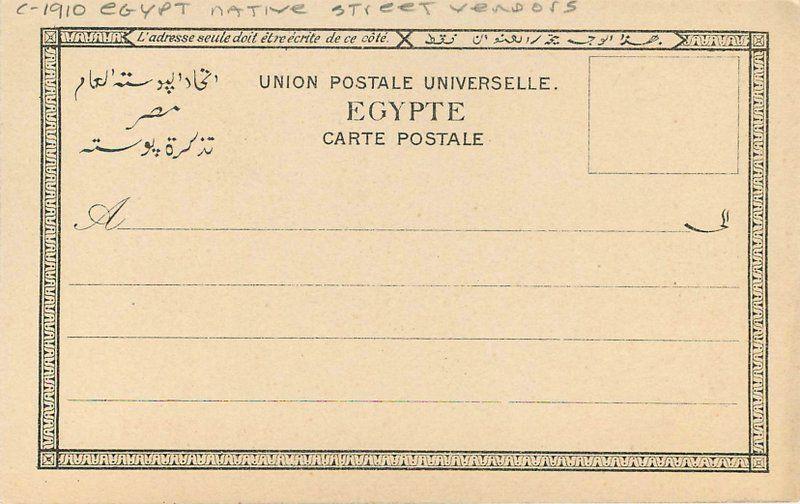 C-1910 EGYPT NATIVE STREET VENDORS
L'adresse seule doit être écrite de ce côté.
هذا الوجه يحرر العنوان فقط.
اتحاد البوسته العام
مصر
تذكرة پوسته
UNION POSTALE UNIVERSELLE.
EGYPTE
CARTE POSTALE
A
الى